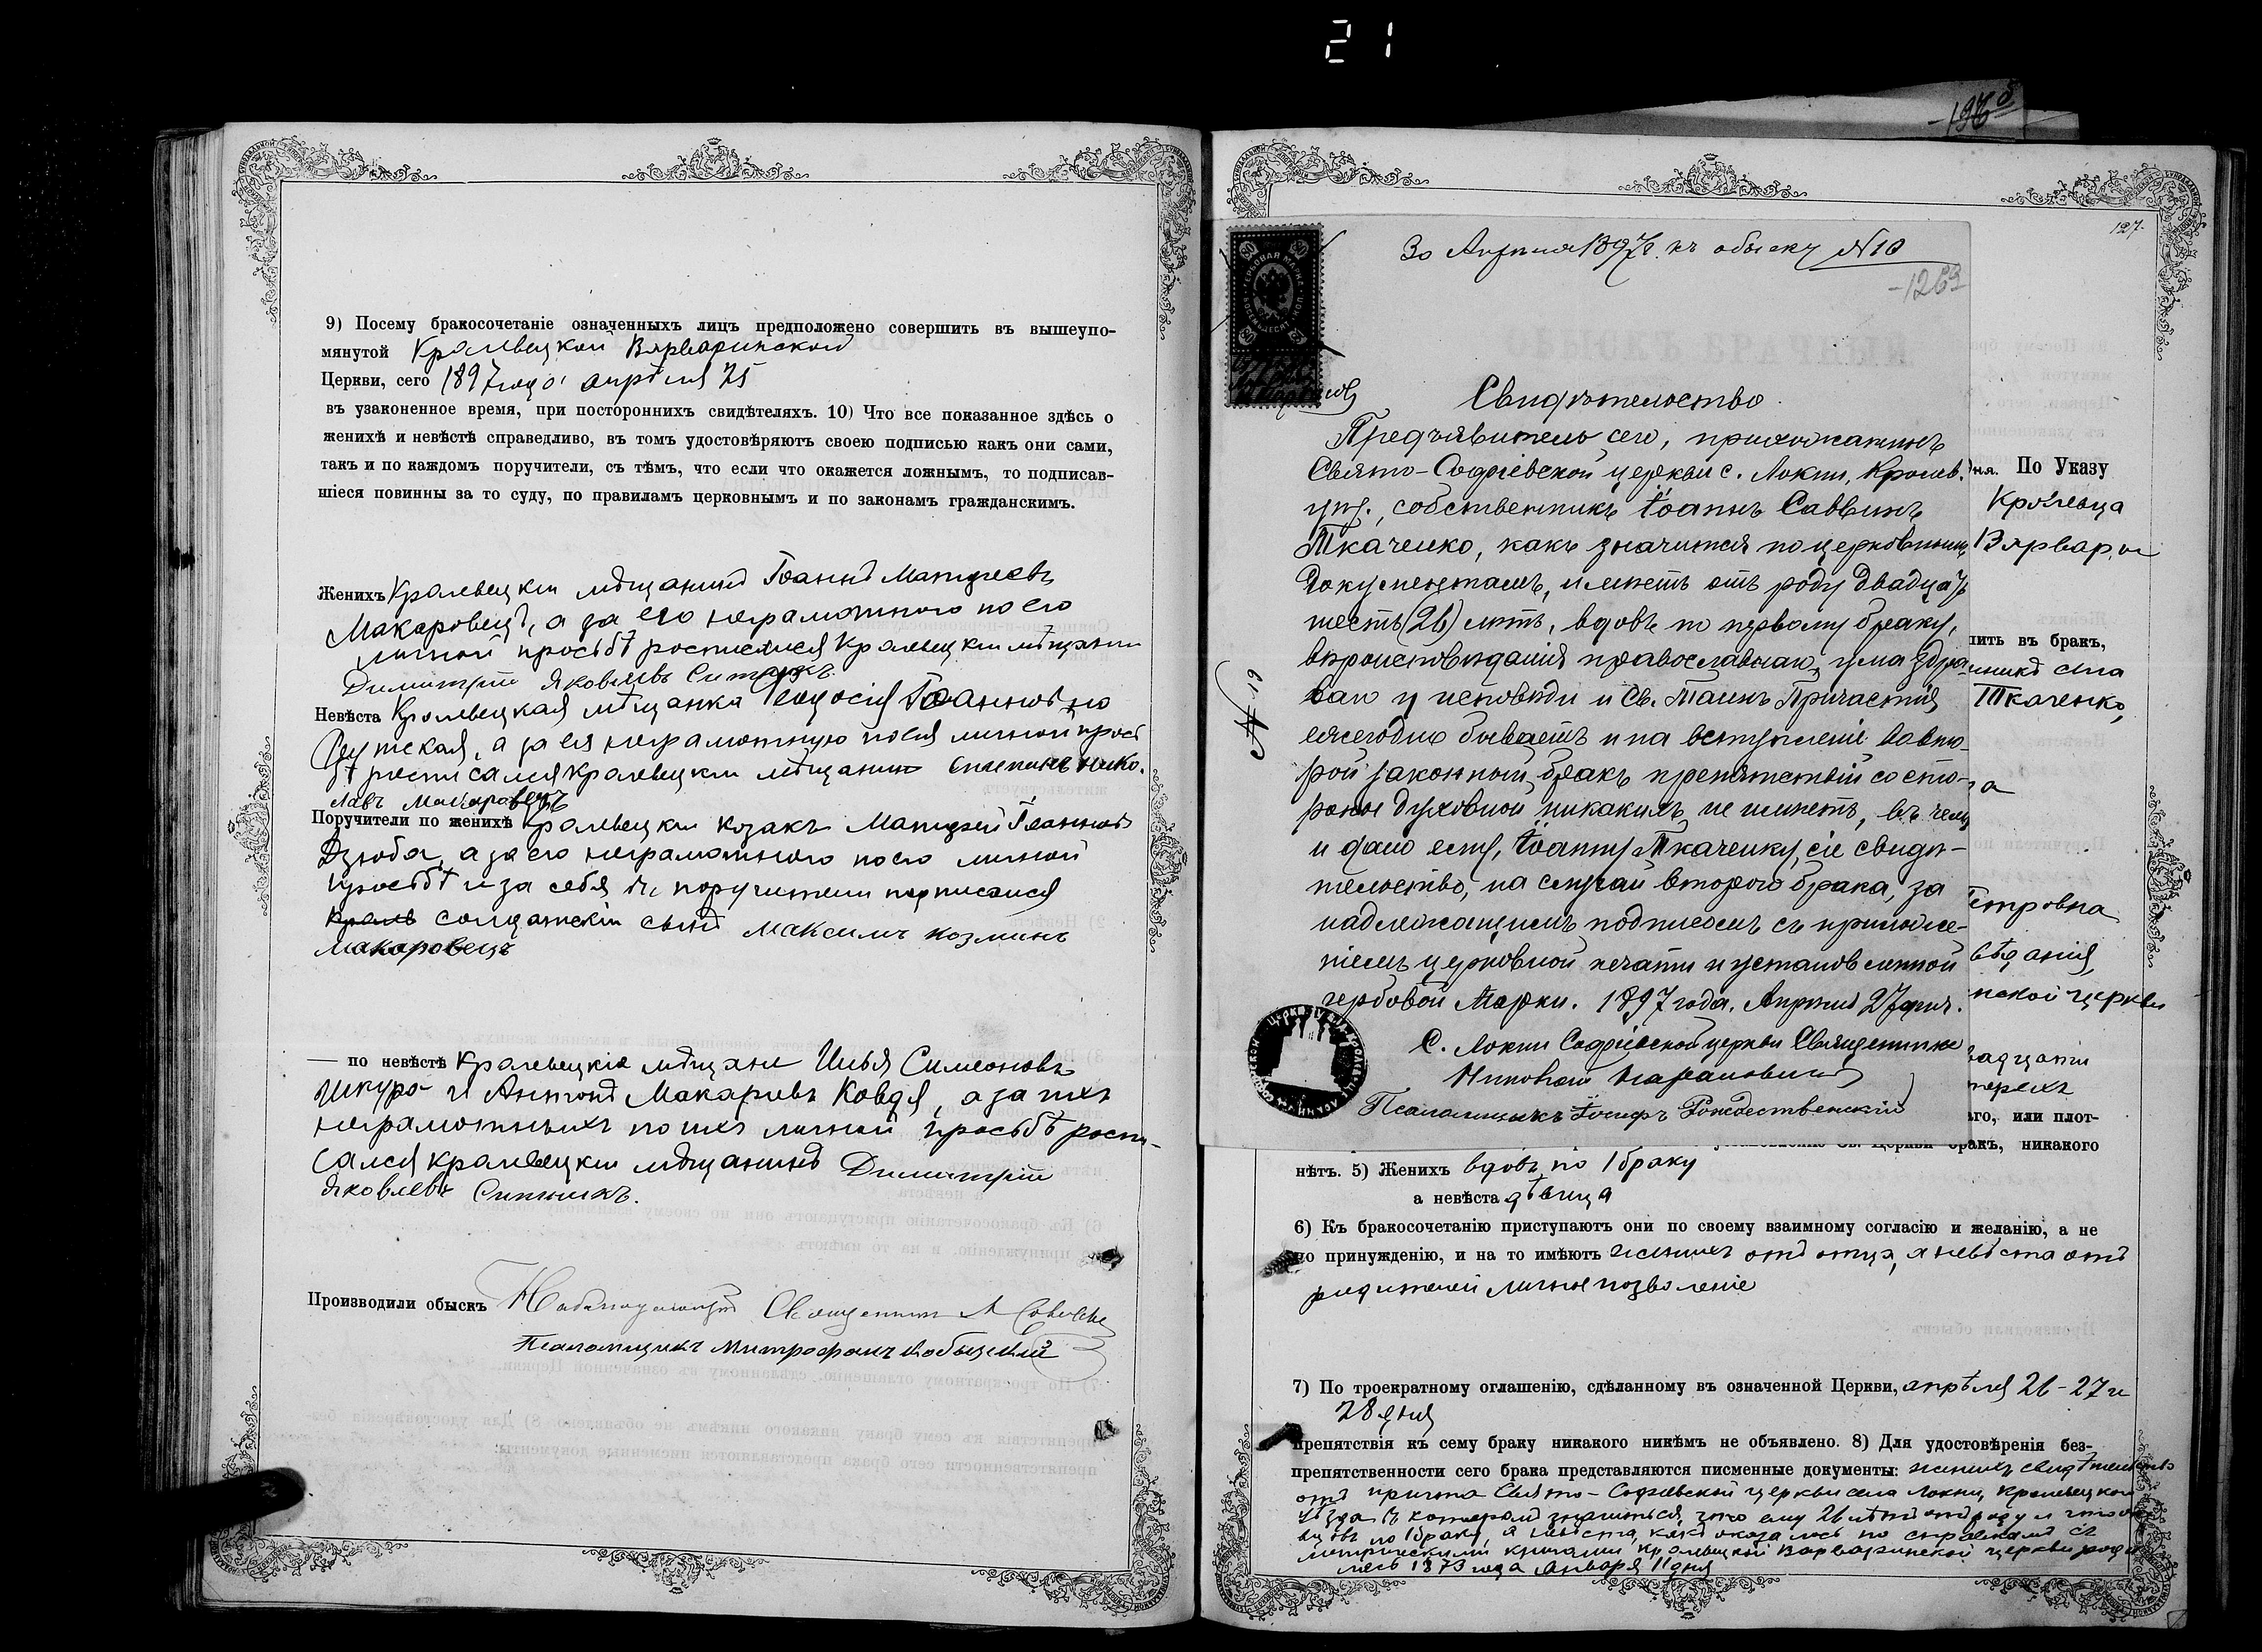 21
9) Посему бракосочетаніе означенныхъ лицъ предположено совершить въ вышеупо-
мянутой Кролевецкой Варваринской
Церкви, сего 1897 года апрѣля 25
въ узаконенное время, при постороннихъ свидѣтеляхъ. 10) Что все показанное здѣсь о
женихѣ и невѣстѣ справедливо, въ томъ удостовѣряютъ своею подписью какъ они сами,
такъ и по каждомъ поручители, съ тѣмъ, что если что окажется ложнымъ, то подписав-
шіеся повинны за то суду, по правиламъ церковнымъ и по законамъ гражданскимъ.
Женихъ Кролевецкій мѣщанинъ Іоаннъ Матѳеевъ
Макаровецъ, а за его неграмотнаго по его
личной просьбѣ росписался Кролевецкій мѣщанин
Димитрій Яковлевъ
Невѣста Кролевецкая мѣщанка Ѳеодосія Іоаннова
а за ея неграмотную по ея личной прось
бѣ росписался Кролевецкій мѣщанин Нико-
лаевъ Макаровецъ
Поручители по женихѣ Кролевецкій козакъ Матѳей Іоанновъ
Дзюба, а за его неграмотного по его личной
просьбѣ и за себя поручители подписался
солдатскій сынъ Максимъ Козминъ
Макаровецъ
— по невѣстѣ Кролевецкіе мѣщане Илья Симеоновъ
Шкура и Антоній Макаріевъ Ковдя, а за ихъ
неграмотныхъ по ихъ личной просьбѣ роспи-
сался кролевецкій мѣщанинъ Димитрій
Яковлевъ
Производили обыскъ Священникъ
Псаломщикъ Митрофанъ
127.
30 Апрѣля 1897 г. къ обыску №10
Свидѣтельство.
Предъявитель сего, прихожанинъ
Свято-Софіевской церкви с. Локни, Кролев.
уѣз., собственникъ Іоаннъ Саввинъ
Ткаченко, какъ значится по церковнымъ
документамъ, имѣетъ отъ роду двадцать
шесть (26) лѣтъ, вдовъ по первому браку,
вѣроисповѣданія православнаго, ума здра-
ваго у исповѣди и Св. Таинъ Причастія
ежегодно бываетъ и на вступленіе во вто-
рой законный бракъ препятствій со сто-
роны духовной никакихъ не имѣетъ, въ чемъ
и дано ему, Іоанну Ткаченку, сіе свидѣ-
тельство, на случай второго брака, за
надлежащимъ подписомъ съ приложе-
ніемъ церковной печати и установленной
гербовой Марки. 1897 года. Апрѣля 27 дня.
С. Локни Софіевской церкви Священникъ
Псаломщикъ Іосифъ Рождественскій
№ 19
дня. По Указу
Кролевца
Варвар
пить въ бракъ,
Ткаченко,
Петровна
вѣданія,
нской церкви
адцати
аго, или плот-
бракъ, никакого
нѣтъ. 5) Женихъ вдовъ по 1 браку
а невѣста дѣвица
6) Къ бракосочетанію приступаютъ они по своему взаимному согласію и желанію, а не
по принужденію, и на то имѣютъ женихъ отъ отца, а невѣста отъ
родителей личное позволеніе
7) По троекратному оглашенію, сдѣланному въ означенной Церкви, апрѣля 26-27 и
28 дня
препятствія къ сему браку никакого никѣмъ не объявлено. 8) Для удостовѣренія без-
препятственности сего брака представляются писменные документы: женихъ свидѣтельство
отъ причта Свято-Софіевской церкви села Локни, Кролевецкого
уѣзда въ которомъ значиться, что ему 26 лѣтъ отъ роду и что онъ
вдовъ по 1 браку, а невѣста, какъ оказалось по справкамъ съ
метрическими книгами Кролевецкой Варваринской церкви роди
лась 1873 года Января 11 дня